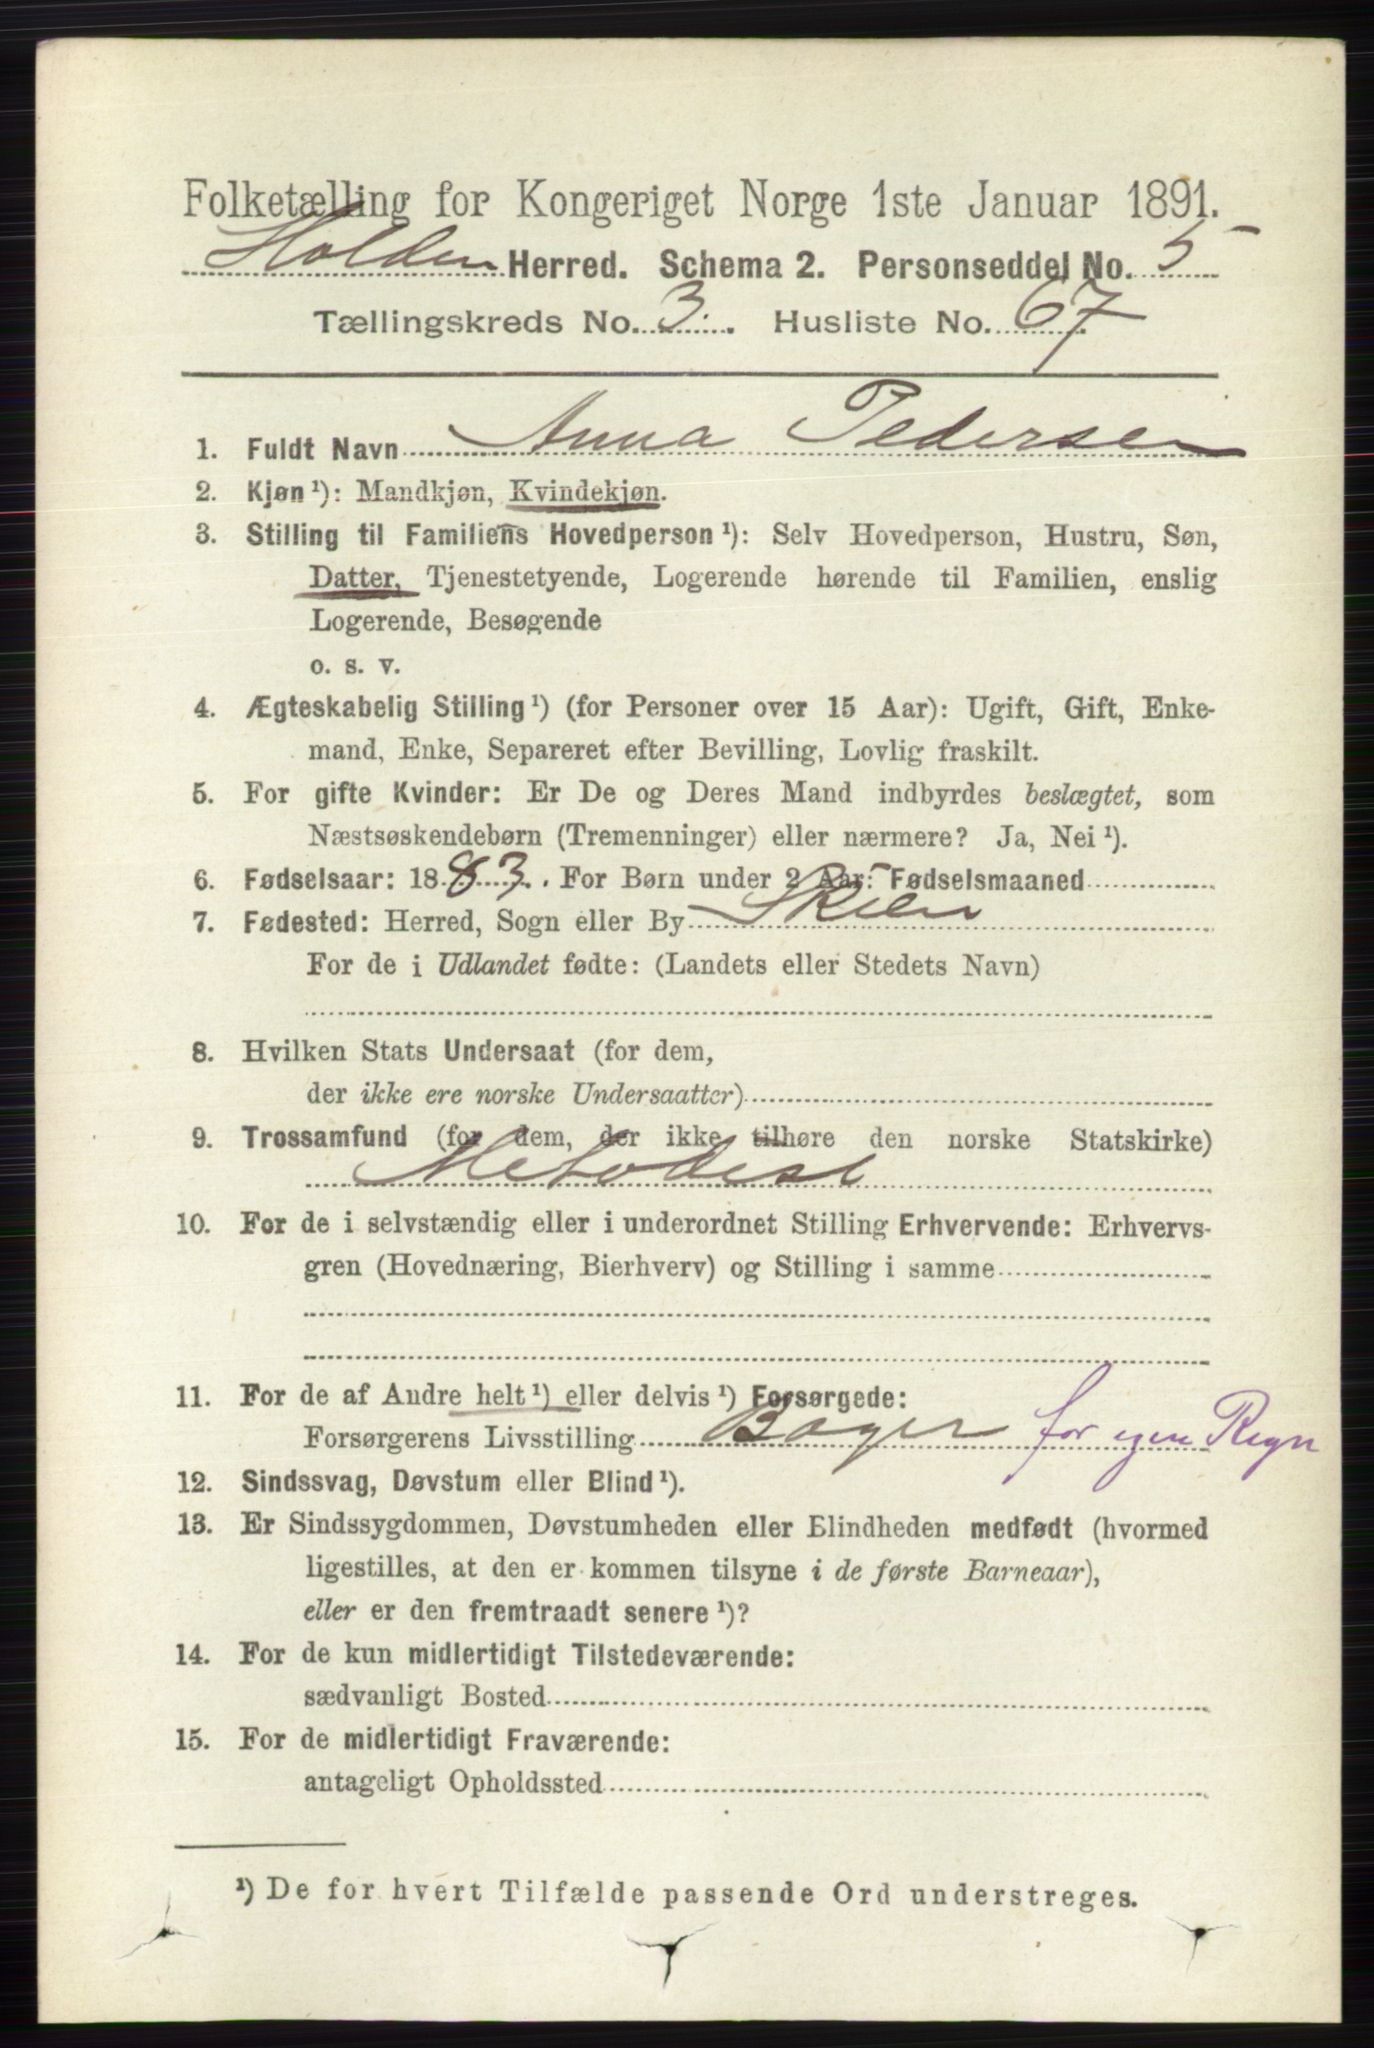 Folketælling for Kongeriget Norge 1ste Januar 1891.
Holden Herred. Schema 2. Personseddel No. 5
Tællingskreds No. 3. Husliste No. 67
1. Fuldt Navn Anna Pedersen
2. Kjøn ¹): Mandkjøn, Kvindekjøn.
3. Stilling til Familiens Hovedperson ¹): Selv Hovedperson, Hustru, Søn,
Datter, Tjenestetyende, Logerende hørende til Familien, enslig
Logerende, Besøgende
o. s. v.
4. Ægteskabelig Stilling ¹) (for Personer over 15 Aar): Ugift, Gift, Enke-
mand, Enke, Separeret efter Bevilling, Lovlig fraskilt.
5. For gifte Kvinder: Er De og Deres Mand indbyrdes beslægtet, som
Næstsøskendebørn (Tremenninger) eller nærmere? Ja, Nei ¹).
6. Fødselsaar: 1883. For Børn under 2 Aar: Fødselsmaaned
7. Fødested: Herred, Sogn eller By Skien
For de i Udlandet fødte: (Landets eller Stedets Navn)
8. Hvilken Stats Undersaat (for dem,
der ikke ere norske Undersaatter)
9. Trossamfund (for dem, der ikke tilhøre den norske Statskirke)
Metodist
10. For de i selvstændig eller i underordnet Stilling Erhvervende: Erhvervs-
gren (Hovednæring, Bierhverv) og Stilling i samme
11. For de af Andre helt ¹) eller delvis ¹) Forsørgede:
Forsørgerens Livsstilling Bager for egen Regn
12. Sindssvag, Døvstum eller Blind ¹).
13. Er Sindssygdommen, Døvstumheden eller Blindheden medfødt (hvormed
ligestilles, at den er kommen tilsyne i de første Barneaar),
eller er den fremtraadt senere ¹)?
14. For de kun midlertidigt Tilstedeværende:
sædvanligt Bosted
15. For de midlertidigt Fraværende:
antageligt Opholdssted
¹) De for hvert Tilfælde passende Ord understreges.